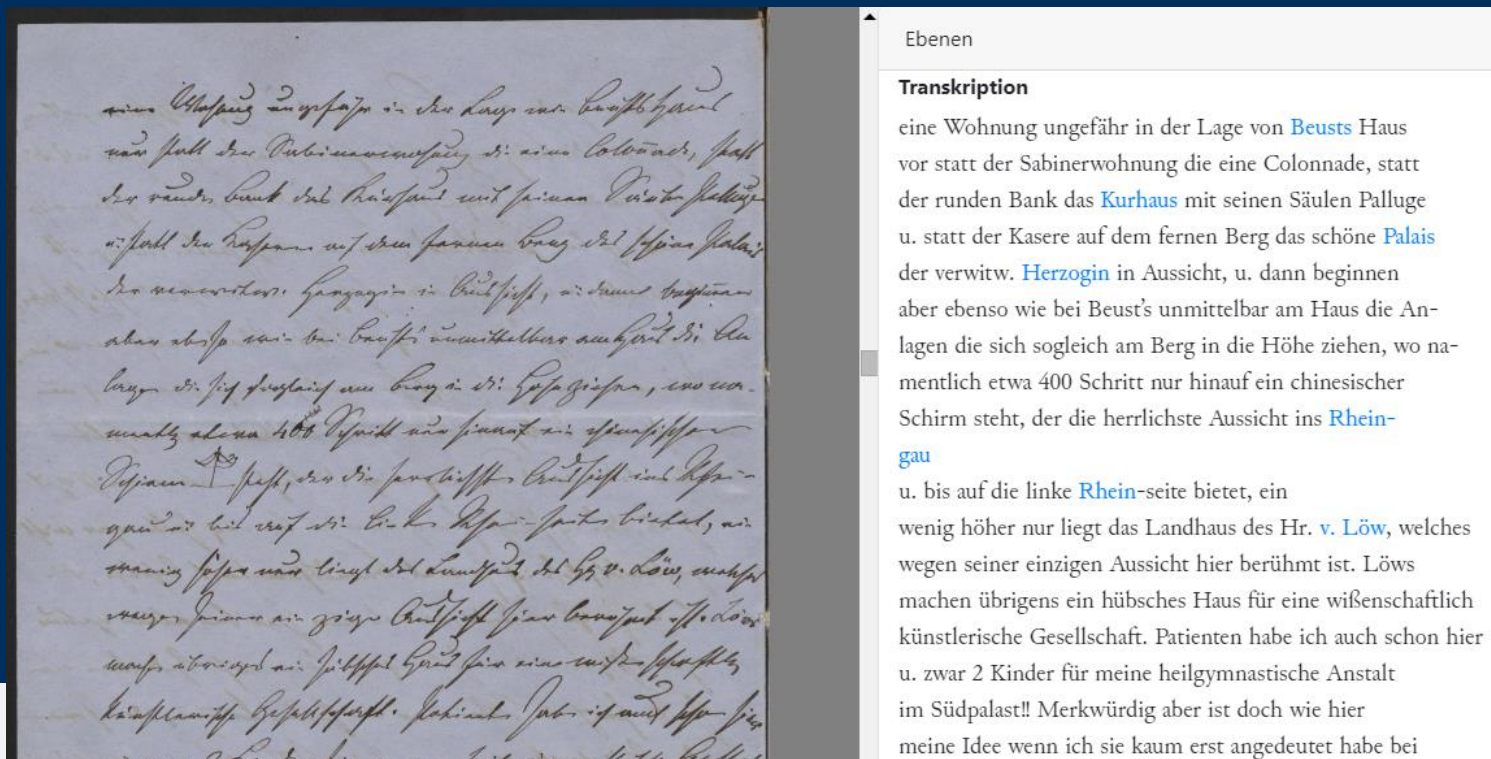 eine Wohnung ungefähr in der Lage wie Beusts Haus
nur statt der Sabinerwohnung die eine Colonnade, statt
der runden Bank das Kurhaus mit seinen
u: statt der Kaserne auf dem fernen Berg das schöne Palais
der verwitw. Herzogin in Aussicht, u: dann beginnen
aber ebenso wie bei Beust's unmittelbar am Haus die An
lagen die sich sogleich am Berg in die Höhe ziehen, wo na-
mentlich etwa 400 Schritt nur hinauf ein chinesischer
Schirm steht, der die herrlichste Aussicht ins Rhein-
gau u: bis auf die linke Rhein-seite bietet, ein
wenig höher nur liegt das Landhaus des Hr v. Löw, welches
wegen seiner einzigen Aussicht hier berühmt ist. Löws
machen übrigens ein hübsches Haus für eine wißenschaftlich
künstlerische Gesellschaft. Patienten habe ich auch schon hier
Ebenen
Transkription
eine Wohnung ungefähr in der Lage von Beusts Haus
vor statt der Sabinerwohnung die eine Colonnade, statt
der runden Bank das Kurhaus mit seinen Säulen Palluge
u. statt der Kasere auf dem fernen Berg das schöne Palais
der verwitw. Herzogin in Aussicht, u. dann beginnen
aber ebenso wie bei Beust's unmittelbar am Haus die An-
lagen die sich sogleich am Berg in die Höhe ziehen, wo na-
mentlich etwa 400 Schritt nur hinauf ein chinesischer
Schirm steht, der die herrlichste Aussicht ins Rhein-
gau
u. bis auf die linke Rhein-seite bietet, ein
wenig höher nur liegt das Landhaus des Hr. v. Löw, welches
wegen seiner einzigen Aussicht hier berühmt ist. Löws
machen übrigens ein hübsches Haus für eine wißenschaftlich
künstlerische Gesellschaft. Patienten habe ich auch schon hier
u. zwar 2 Kinder für meine heilgymnastische Anstalt
im Südpalast!! Merkwürdig aber ist doch wie hier
meine Idee wenn ich sie kaum erst angedeutet habe bei